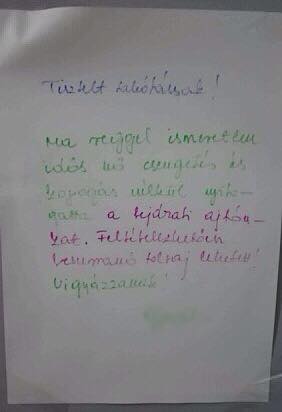 Tisztelt Lakótársak!
Ma reggel ismeretlen
idős nő csengetés és
kopogás nélkül nyito-
gatta a lejárati ajtón-
kat. Feltételezhetően
besurranó tolvaj lehetett!
Vigyázzanak!